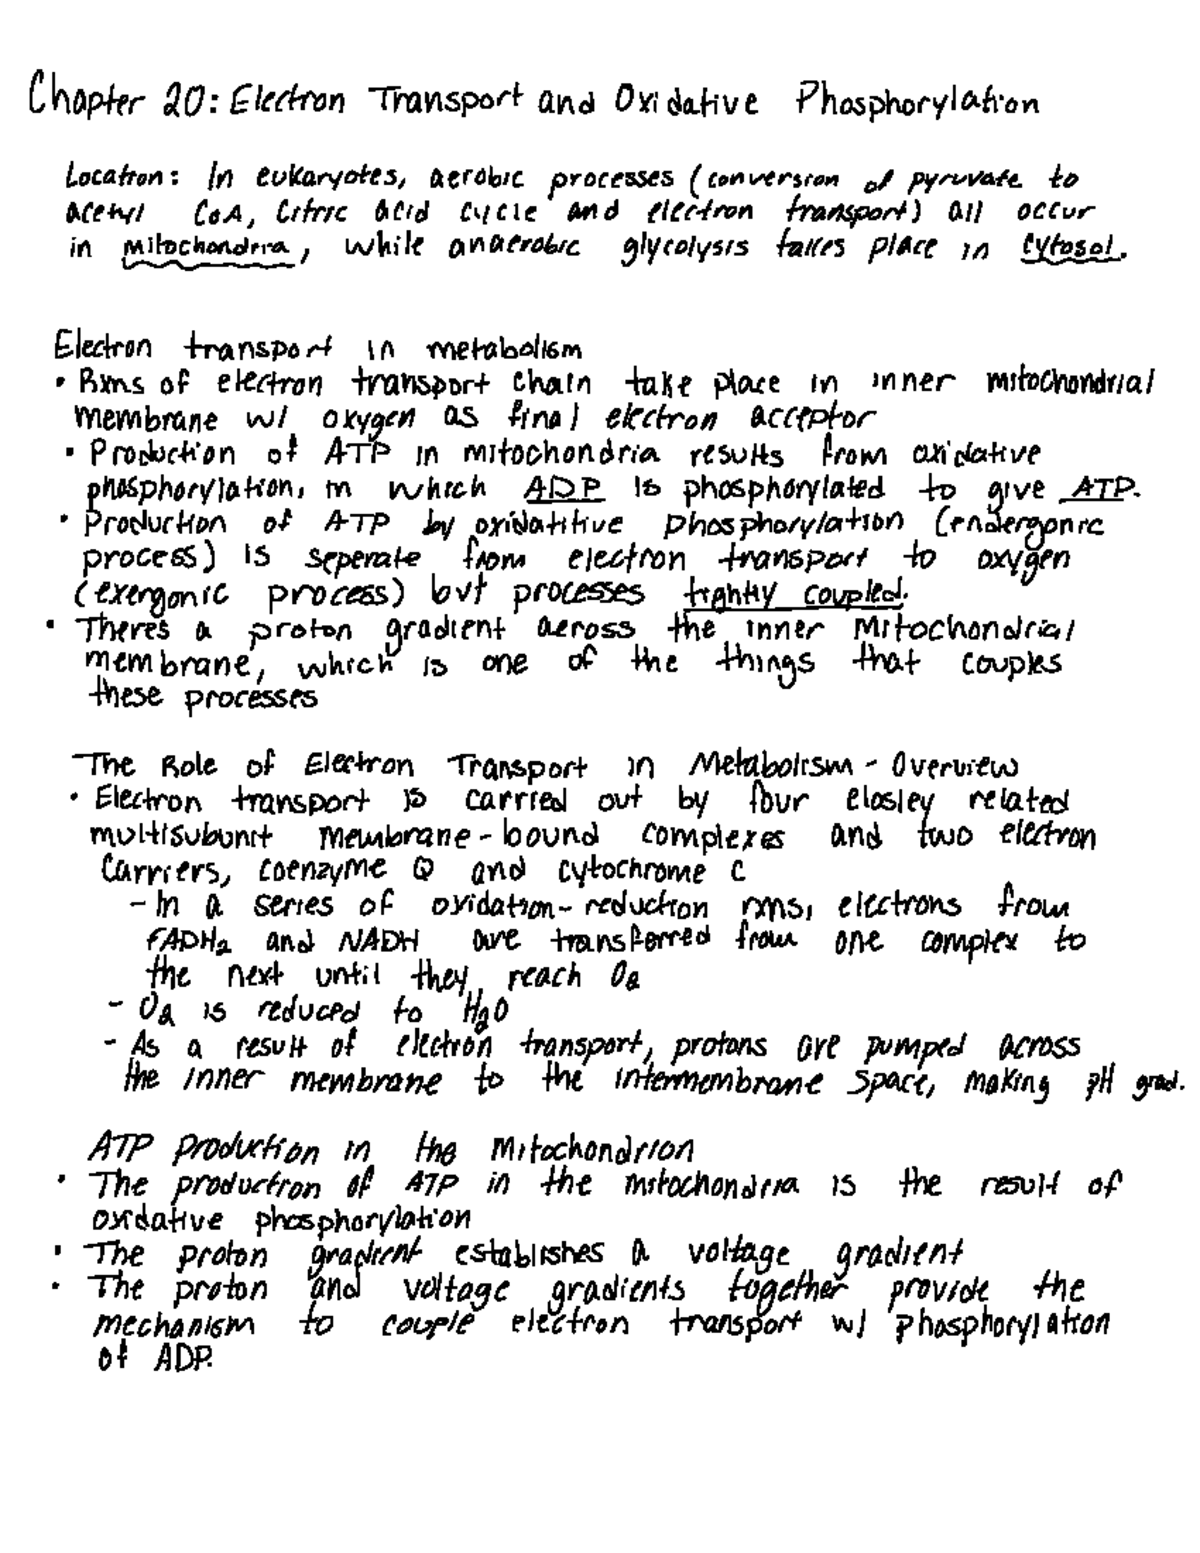 Chapter 20: Electron Transport and Oxidative Phosphorylation
Location: In eukaryotes, aerobic processes (conversion of pyruvate to
acetyl CoA, Citric acid cycle and electron transport) all occur
in mitochondria, while anaerobic glycolysis takes place in cytosol.
Electron transport in metabolism
• Rxns of electron transport chain take place in inner mitochondrial
membrane w/ oxygen as final electron acceptor
• Production of ATP in mitochondria results from oxidative
phosphorylation, in which ADP is phosphorylated to give ATP.
• Production of ATP by oxidatitive phosphorylation (endergonic
process) is seperate from electron transport to oxygen
(exergonic process) but processes tightly coupled.
• Theres a proton gradient across the inner Mitochondrial
membrane, which is one of the things that couples
these processes
The Role of Electron Transport in Metabolism - Overview
• Electron transport is carried out by four closley related
multisubunit membrane-bound complexes and two electron
Carriers, coenzyme Q and cytochrome C
- In a series of oxidation-reduction rxns, electrons from
FADH2 and NADH are transferred from one complex to
the next until they reach O2
- O2 is reduced to H2O
- As a result of electron transport, protons are pumped across
the inner membrane to the intermembrane space, making pH grad.
ATP production in the Mitochondrion
• The production of ATP in the mitochondria is the result of
oxidative phosphorylation
• The proton gradient establishes a voltage gradient
• The proton and voltage gradients together provide the
mechanism to couple electron transport w/ phosphorylation
of ADP.